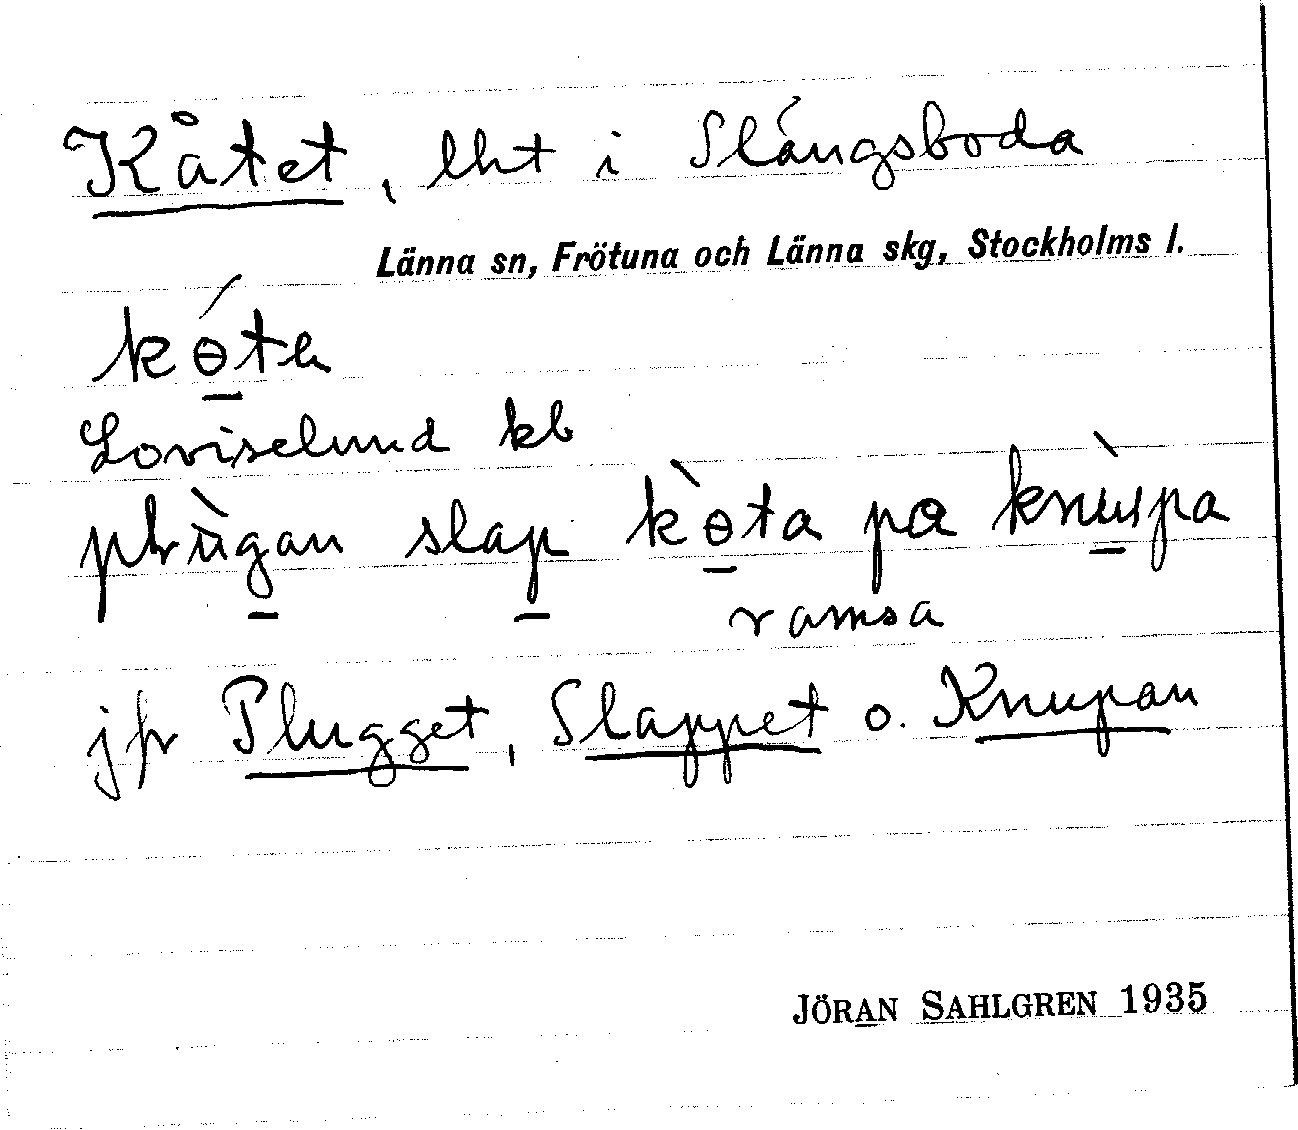 Kåtet, lht i Slángsboda
Länna sn, Frötuna och Länna skg, Stockholms l.
kɵ́tɐ
Loviselund kb
slap kɵ̀ta pa
ramsa
jfr Plugget, Slappet o. Knupan
JÖRAN SAHLGREN 1935